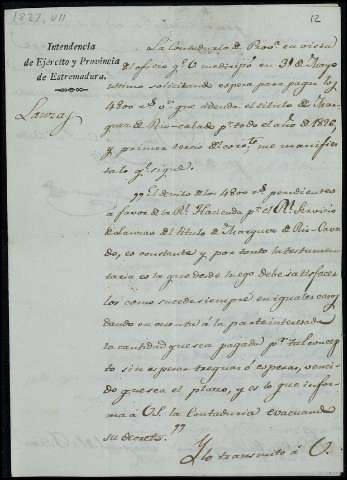 1827, VII
12
Intendencia
de Ejército y Provincia
de Extremadura.
Lanzas
La Contaduría de Prov.ª en vista
del oficio q.e V. me dirijió en 31 de Mayo
ultimo solicitando espera para pagar los
4800 r.s v.n que adeuda el titulo de Mar-
ques de Rio-cabado p.r todo el año de 1826,
y primer tercio del corr.te me manifies-
ta lo q.e sigue.
„El devito de los 4800 r.s pendientes
á favor de la R.l Hacienda p.r el R.l Servicio
de Lanzas del titulo de Marques de Rio-Cava-
do, es constante y, por tanto la testamen-
taria es la que desde luego debe satisfacer-
los como sucede siempre en iguales casos
dando en cuenta á la parte interesada
la cantidad que sea pagada p.r tal concep-
to sin esperar treguas ó esperas, venci-
do que sea el plazo, y es lo que infor-
ma á V.S. la Contaduría evacuando
su decreto.”
Y lo transmito á V.